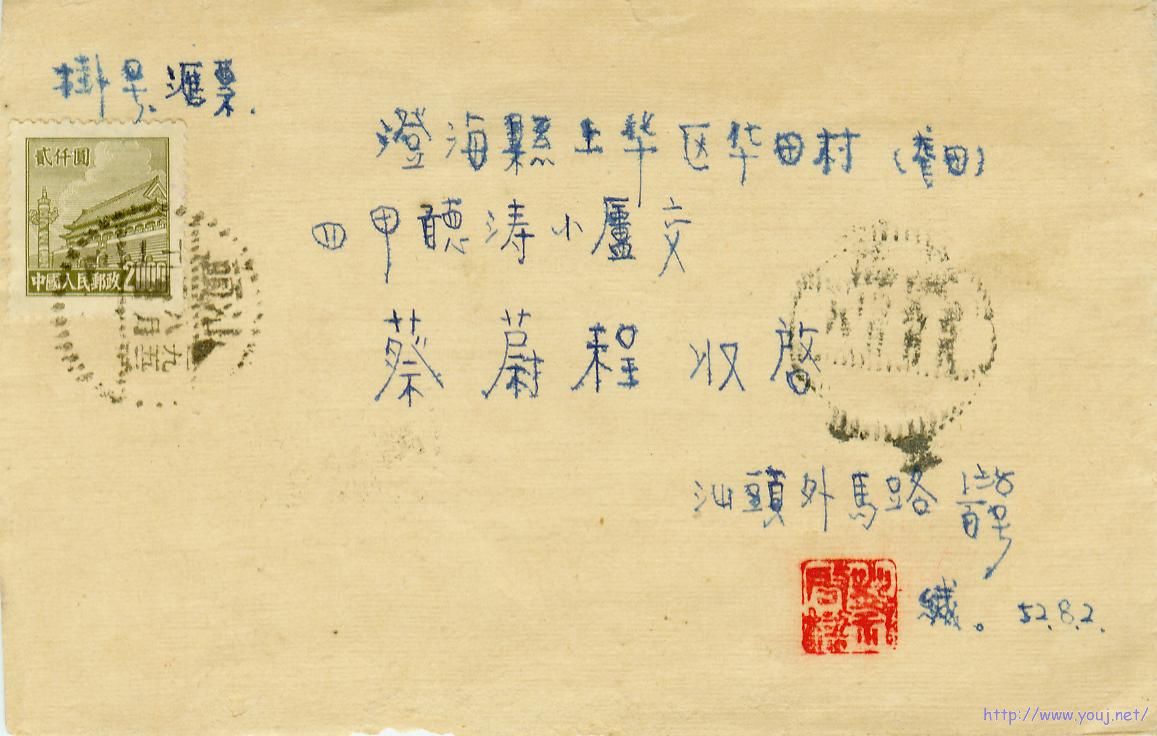 掛号滙票.
貳仟圓
中國人民郵政 2000
澄海縣上华区华田村(奪田)
四甲聽涛小廬交
蔡蔚程收啓
汕頭外馬路
百号
緘。 52.8.2.
http://www.youj.net/